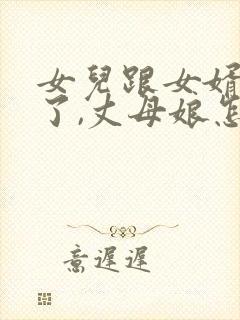 女兒跟女婿
了,丈母娘怎
意遲遲